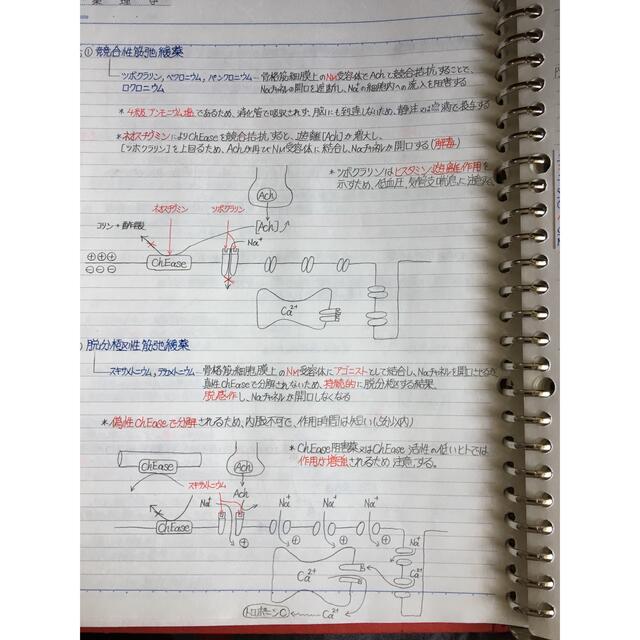 薬理学
① 競合性筋弛緩薬
ツボクラリン, ベクロニウム, パンクロニウム
ロクロニウム
骨格筋細胞膜上のNM受容体でAchと競合拮抗することで、
Naチャネルの開口を遮断し、Na⁺の細胞内への流入を阻害する
* 4級アンモニウム塩であるため、消化管で吸収されず、脳にも到達しないため、静注又は点滴で投与する
* ネオスチグミンによりChEaseを競合拮抗すると、遊離[Ach]が増大し、
[ツボクラリン]を上回るため、Achが再びNM受容体に結合し、Naチャネルが開口する(解毒)
* ツボクラリンはヒスタミン遊離作用を
示すため、低血圧、気管支喘息に注意する
Ach
ネオスチグミン
ツボクラリン
コリン +
[Ach]
Na⁺
⊕⊕⊕
⊖⊖⊖
ChEase
Ca²⁺
脱分極性筋弛緩薬
スキサメトニウム, デカメトニウム
骨格筋細胞膜上のNM受容体にアゴニストとして結合し、Naチャネルを開口させるが
真性ChEaseで分解されないため、持続的に脱分極する結果、
脱感作し、Naチャネルが開口しなくなる
* 偽性ChEaseで分解されるため、内服不可で、作用時間は短い(5分以内)
* ChEase阻害薬又はChEase活性の低いヒトでは
作用が増強されるため注意する。
ChEase
Ach
スキサメトニウム
Na⁺
Ach
Na⁺
Na⁺
Na⁺
ChEase
⊕
⊕
⊕
⊕
Na⁺
Ca²⁺
Ca²⁺
トロポニンC
Ca²⁺